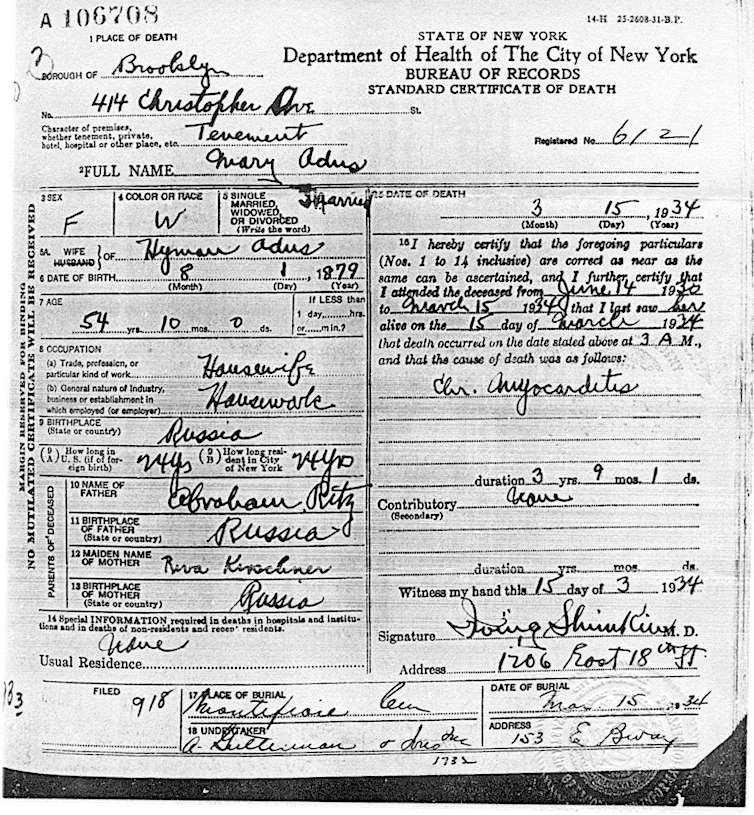 A 106708
14-H 25-2608-31-B.P.
1 PLACE OF DEATH
STATE OF NEW YORK
Department of Health of The City of New York
BUREAU OF RECORDS
STANDARD CERTIFICATE OF DEATH
BOROUGH OF Brooklyn
No. 414 Christopher Ave St.
Character of premises,
whether tenement, private,
hotel, hospital or other place, etc. Tenement
Registered No. 6121
2 FULL NAME Mary Adus
MARGIN RESERVED FOR BINDING
NO MUTILATED CERTIFICATE WILL BE RECEIVED
3 SEX
F
4 COLOR OR RACE
W
5 SINGLE
MARRIED,
WIDOWED,
OR DIVORCED
(Write the word)
Married
5A WIFE
HUSBAND } OF Hyman Adus
6 DATE OF BIRTH 8 1, 1879
(Month) (Day) (Year)
7 AGE
54 yrs. 10 mos. 0 ds.
If LESS than
1 day, hrs.
or min.?
8 OCCUPATION
(a) Trade, profession, or
particular kind of work Housewife
(b) General nature of Industry,
business or establishment in
which employed (or employer) Housework
9 BIRTHPLACE
(State or country) Russia
(9 A) How long in
U. S. (if of for-
eign birth) 24 yrs
(9 B) How long resi-
dent in City
of New York 24 yrs
PARENTS OF DECEASED
10 NAME OF
FATHER Abraham Ritz
11 BIRTHPLACE
OF FATHER
(State or country) Russia
12 MAIDEN NAME
OF MOTHER Riva Kirschner
13 BIRTHPLACE
OF MOTHER
(State or country) Russia
14 Special INFORMATION required in deaths in hospitals and institu-
tions and in deaths of non-residents and recent residents.
None
Usual Residence
15 DATE OF DEATH
3 15, 1934
(Month) (Day) (Year)
16 I hereby certify that the foregoing particulars
(Nos. 1 to 14 inclusive) are correct as near as the
same can be ascertained, and I further certify that
I attended the deceased from June 14 1930
to March 15 1934, that I last saw her
alive on the 15 day of March 1934
that death occurred on the date stated above at 3 A M.,
and that the cause of death was as follows:
Chr. Myocarditis
duration 3 yrs. 9 mos. 1 ds.
Contributory None
(Secondary)
duration yrs. mos. ds.
Witness my hand this 15 day of 3 1934
Signature Irving M. D.
Address 1206 East 18 St
FILED
918
17 PLACE OF BURIAL
Montifiore Cem
DATE OF BURIAL
Mar 15 1934
18 UNDERTAKER
A. Gutterman & Sons Inc
1732
ADDRESS
153 E Bway